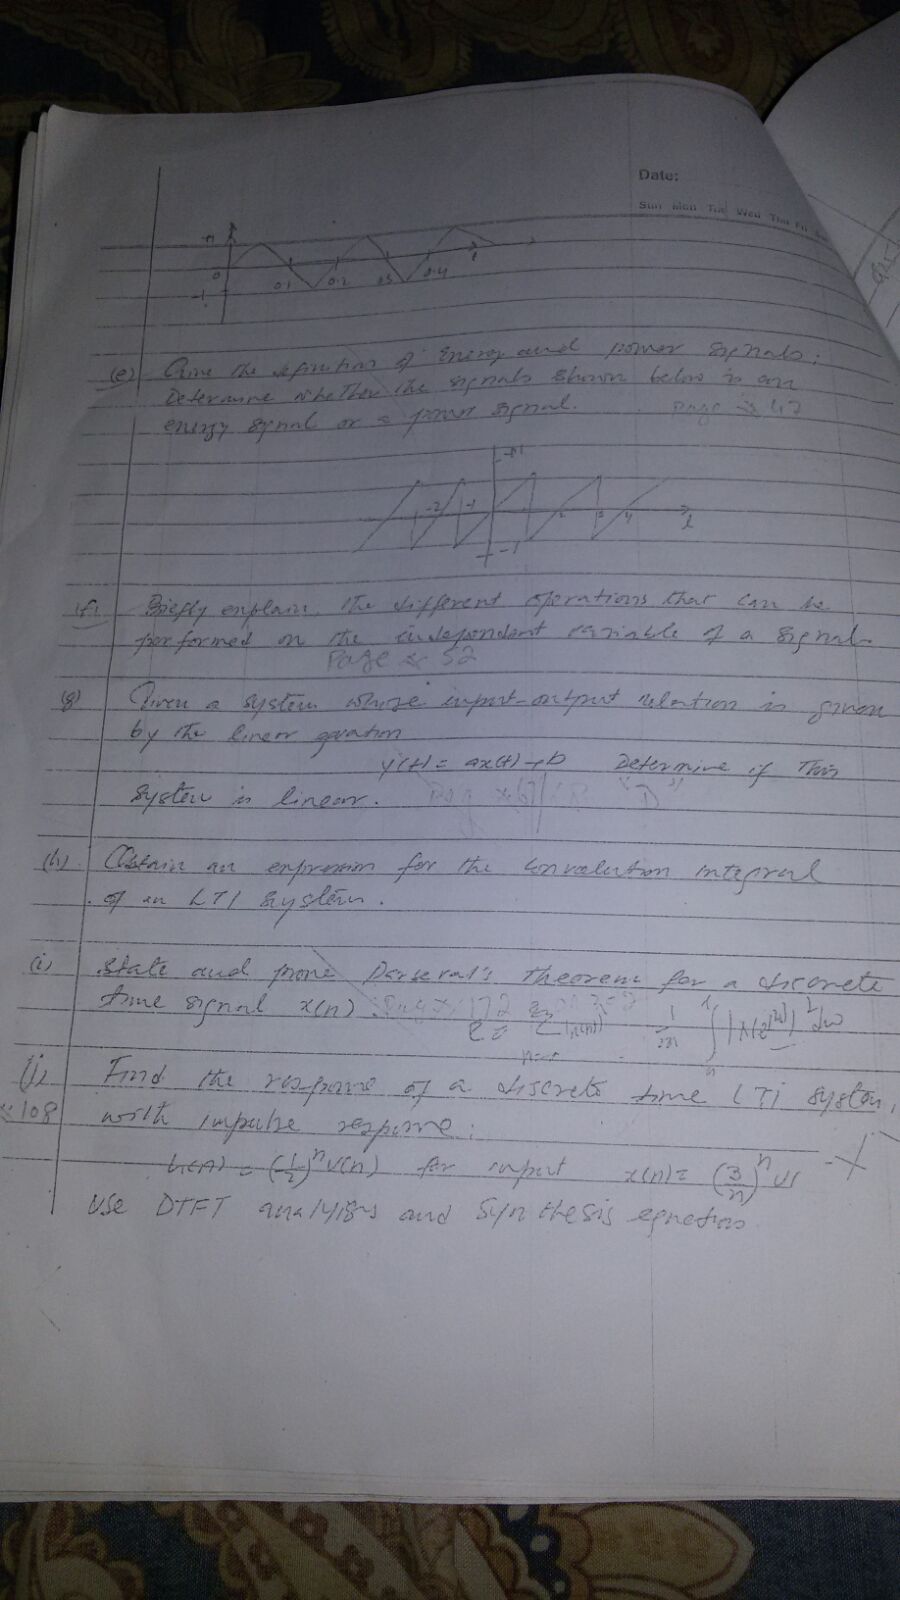 Date:
Sun Mon Tue Wed Thu Fri
0 0.1 0.2 0.4 t
-1
(e) Give the definition of Energy and power signals.
Determine whether the signals shown below is an
energy signal or a power signal. Page 47
+1
-2 -1 1 2 3 4 t
-1
(f) Briefly explain the different operations that can be
performed on the independent variable of a signal.
Page 52
(g) Given a system whose input-output relation is given
by the linear equation
y(t) = ax(t) + b Determine if this
system is linear.
(h) Obtain an expression for the convolution integral
of an LTI system.
(i) State and prove Parseval's theorem for a discrete
time signal x(n)
(j) Find the response of a discrete time LTI system,
108 with impulse response:
h(n) = (1/2)^n u(n) for input x(n) =
Use DTFT analysis and synthesis equation